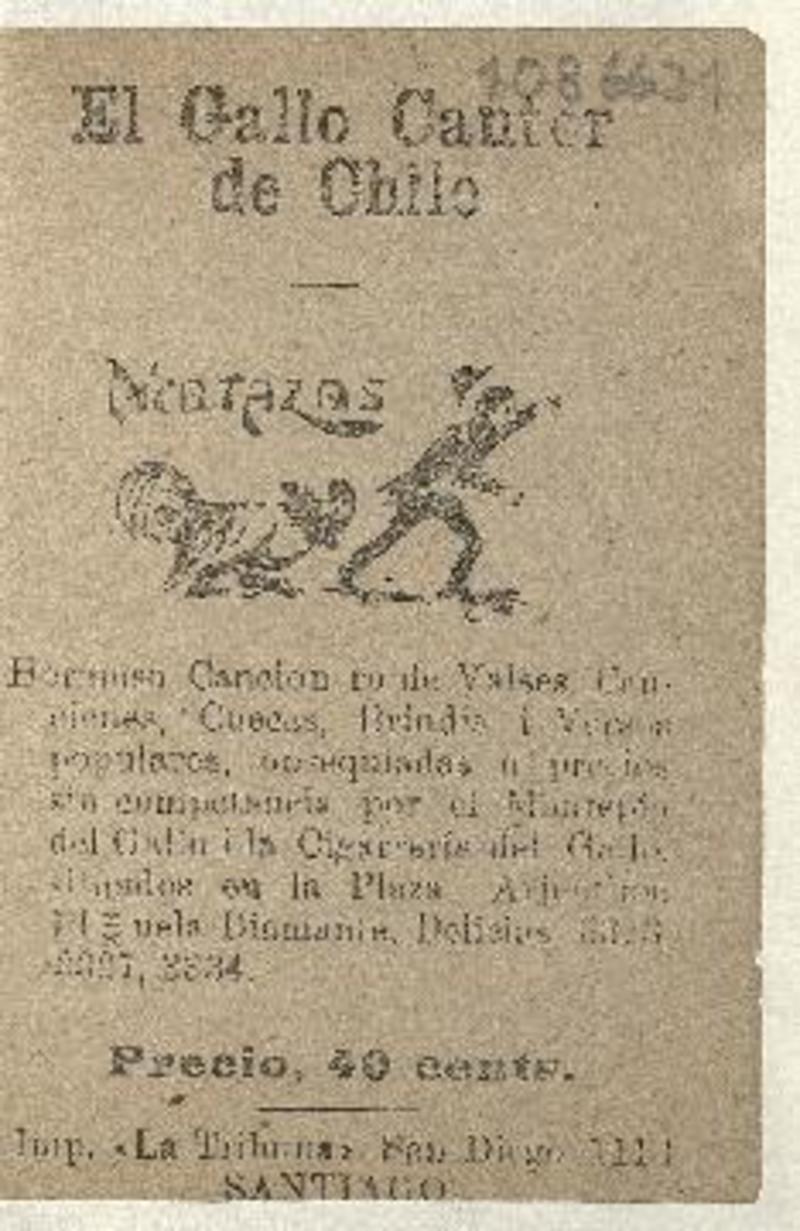 El Gallo Cantor
de Chile
Hermoso Cancionero de Valses, Can-
ciones, Cuecas, Brindis i Versos
populares, obsequiadas a precios
sin competencia por el
del Gallo i la Cigarrería del Gallo,
situados en la Plaza Arjentina
Diamante, Delicias
Precio, 40 cents.
Imp. «La Tribuna». San Diego
SANTIAGO